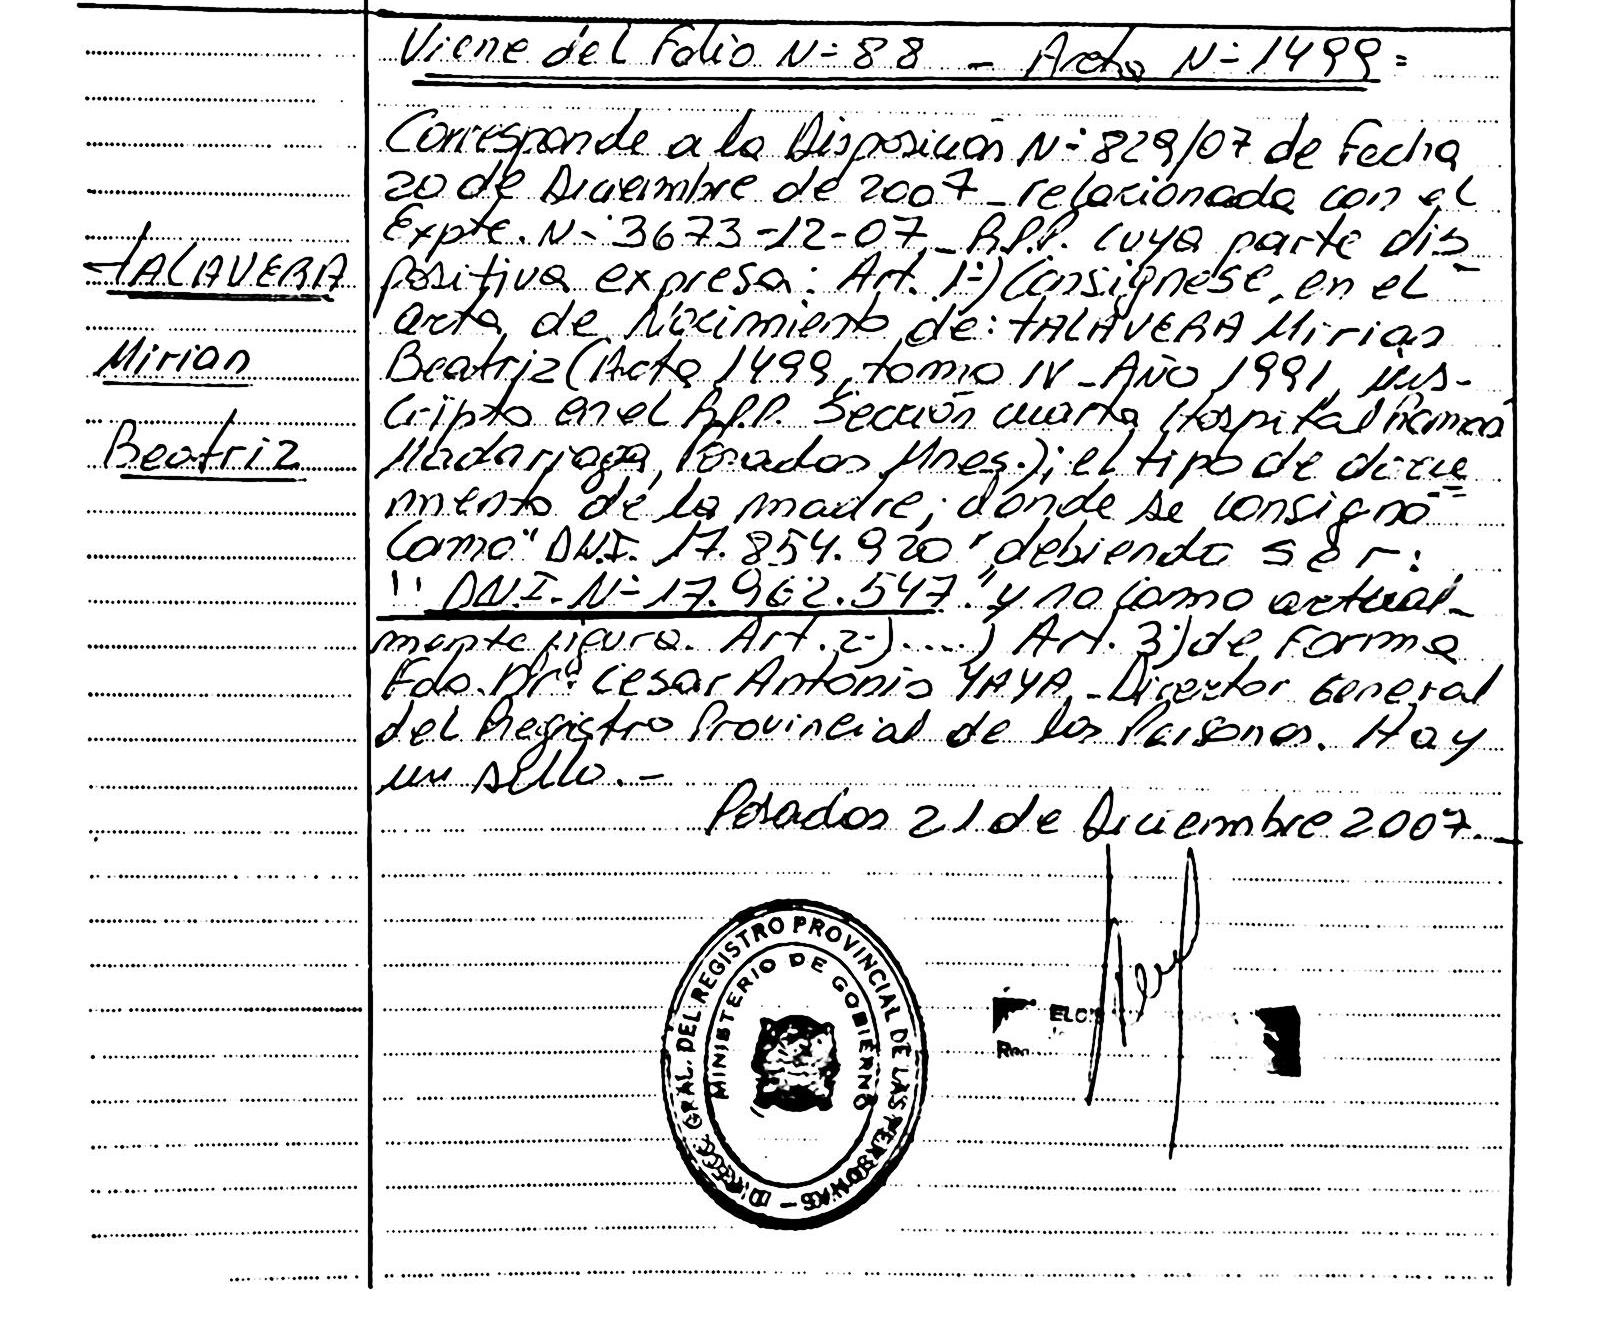 Viene del Folio N- 88 - Acta N- 1499 =
Corresponde a la Disposición N- 829/07 de Fecha
20 de Diciembre de 2007 - relacionada con el
Expte. N- 3673-12-07 - R.P.P. cuya parte dis
TALAVERA
positiva expresa: Art. 1-) Consignese, en el
acta de Nacimiento de: TALAVERA Mirian
Mirian
Beatriz (Acta 1499, tomo IV - Año 1991, ins-
cripto en el R.P.P. Sección cuarta Hospital Ramon
Beatriz
Madariaga, Posadas Mnes.); el tipo de docu
mento de la madre; donde se consignó
Como "D.N.I. 17.854.920" debiendo ser:
"D.N.I. N- 17.962.547" y no como actual-
mente figura. Art. 2-) ....) Art. 3-) de Forma
Fdo. Dr. Cesar Antonio YAYA - Director General
del Registro Provincial de las Personas. Hay
un sello. -
Posadas 21 de Diciembre 2007. -
GRAL. DEL REGISTRO PROVINCIAL DE LAS PERSONAS -
MINISTERIO DE GOBIERNO